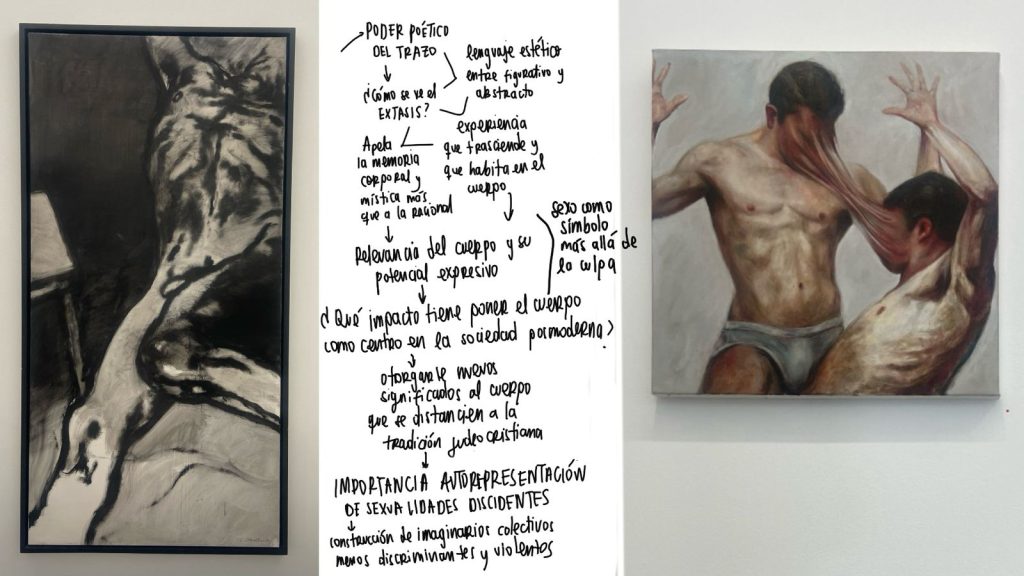 PODER POÉTICO
DEL TRAZO
lenguaje estético
entre figurativo y
abstracto
¿Cómo se ve el
EXTASIS?
experiencia
que trasciende y
que habita en el
cuerpo
Apela
la memoria
corporal y
mística más
que a la racional
sexo como
símbolo
más allá de
la culpa
Relevancia del cuerpo y su
potencial expresivo
¿Qué impacto tiene poner el cuerpo
como centro en la sociedad posmoderna?
otorgarle nuevos
significados al cuerpo
que se distancien a la
tradición judeocristiana
IMPORTANCIA AUTOREPRESENTACIÓN
DE SEXUALIDADES DISCIDENTES
construcción de imaginarios colectivos
menos discriminantes y violentos